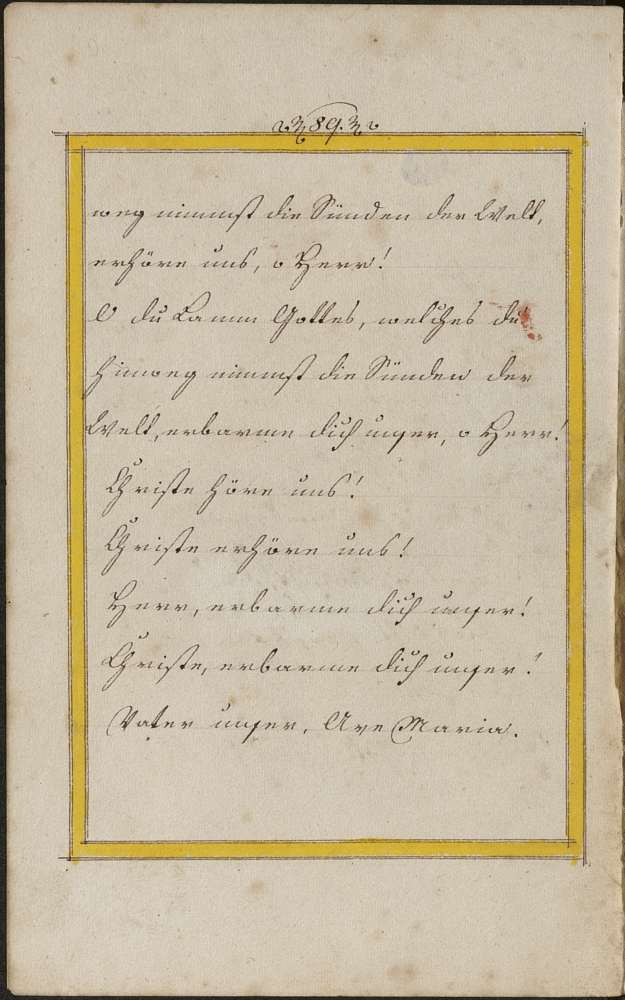 89.
weg nimmst die Sünden der Welt,
erhöre uns, o Herr!
O du Lamm Gottes, welches du
hinweg nimmst die Sünden der
Welt, erbarme dich unser, o Herr!
Christe höre uns!
Christe erhöre uns!
Herr, erbarme dich unser!
Christe, erbarme dich unser!
Vater unser, Ave Maria.